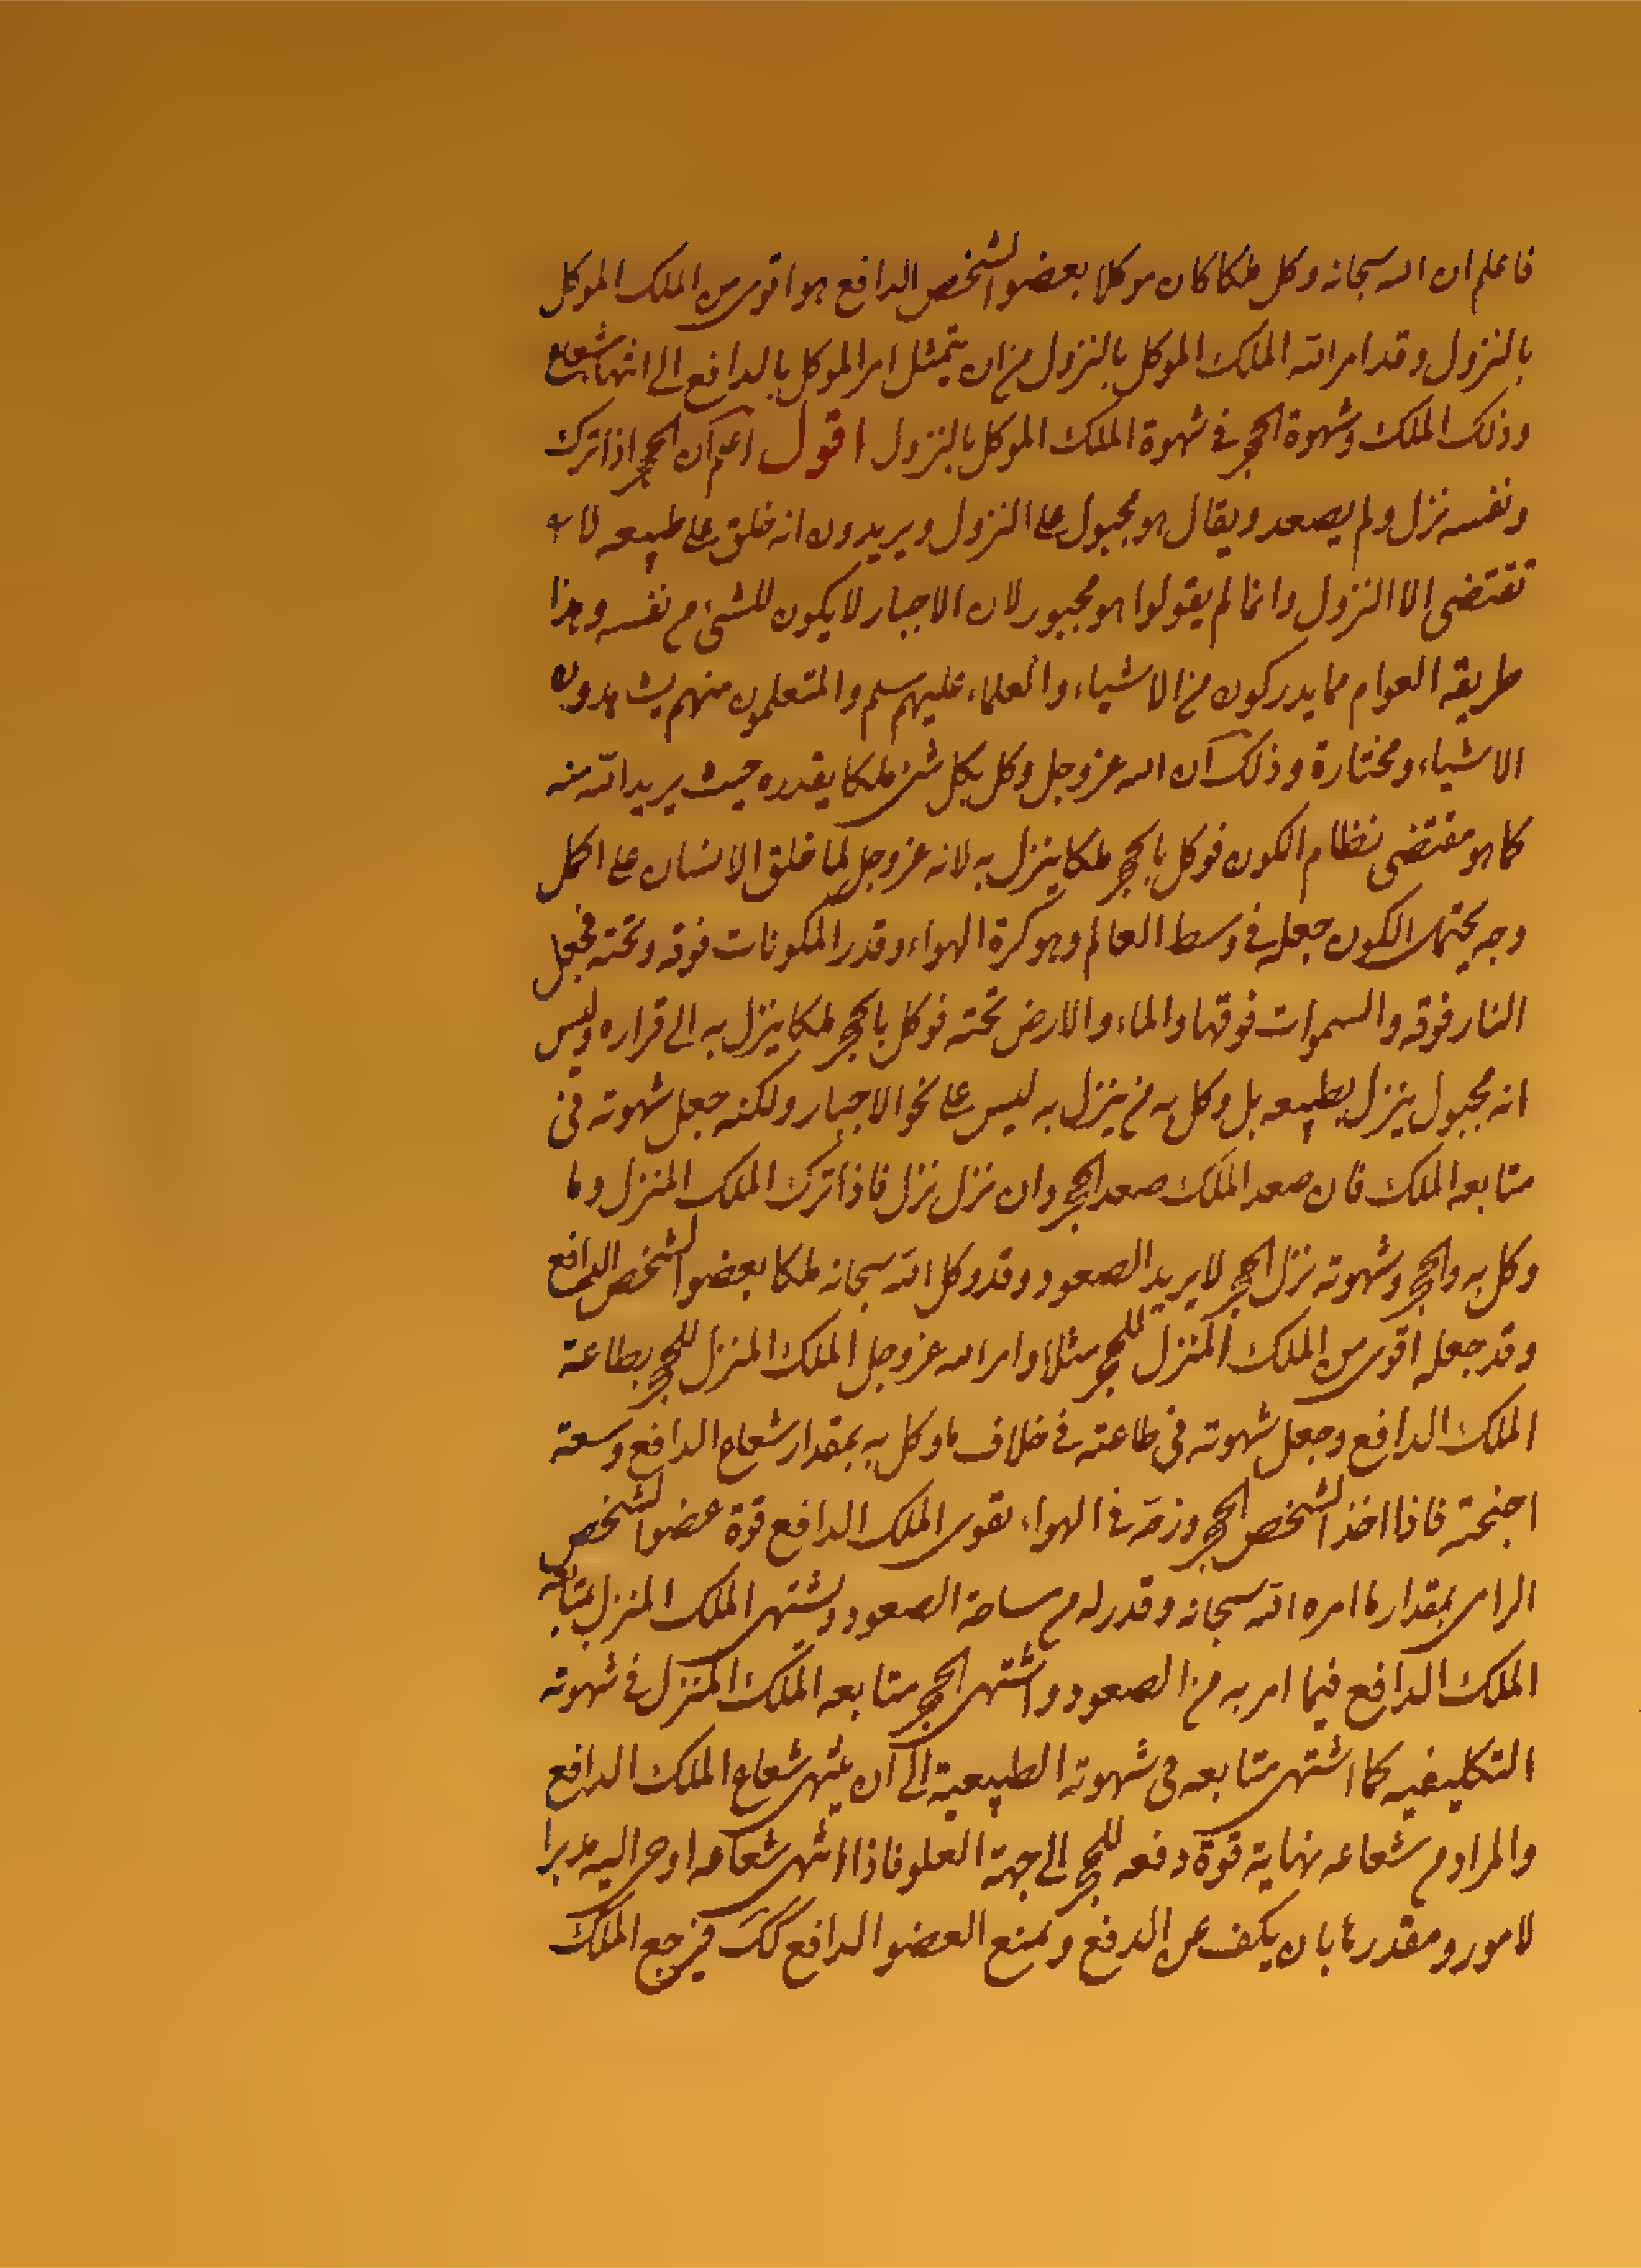 فاعلم ان الله سبحانه وكل ملكا كان موكلا بعضو الشخص الدافع هو اقوى من الملك الموكل
بالنزول وقد امر الله الملك الموكل بالنزول من ان يتمثل امر الموكل بالدافع الى انتهاء شعاع
وذلك الملك وشهوة الحجر في شهوة الملك الموكل بالنزول اقول اعلم ان الحجر اذا ترك
ونفسه نزل ولم يصعد ويقال هو مجبول على النزول ويريدون انه خلق على طبيعه لا
تقتضى الا النزول وانما لم يقولوا هو مجبور لان الاجبار لا يكون للشئ من نفسه وهذا
طريقة العوام مما يدركون من الاشياء والعلماء عليهم سلم والمتعلمون منهم يشاهدون
الاشياء ومختارة وذلك ان الله عز وجل وكل بكل شئ ملكا يقدره حيث يريد الله منه
كما هو مقتضى نظام الكون فوكل بالحجر ملكا ينزل به لانه عز وجل لما خلق الانسان على اكمل
وجه يحتمله الكون جعله في وسط العالم وهو كرة الهواء وقدر المكونات فوقه وتحته فجعل
النار فوقه والسموات فوقها والماء والارض تحته فوكل بالحجر ملكا ينزل به الى قراره وليس
انه مجبول ينزل بطبيعه بل وكل به من ينزل به ليس على نحو الاجبار ولكنه جعل شهوته في
متابعه الملك فان صعد الملك صعد الحجر وان نزل نزل فاذا ترك الملك المنزل وما
وكل به والحجر وشهوته نزل الحجر لا يريد الصعود وقد وكل الله سبحانه ملكا بعضو الشخص الدافع
وقد جعله اقوى من الملك المنزل للحجر مثلا وامر الله عز وجل الملك المنزل للحجر بطاعة
الملك الدافع وجعل شهوته في طاعته في خلاف ما وكل به بمقدار شعاع الدافع وسعة
اجنحته فاذا اخذ الشخص الحجر وزجه في الهواء يقوى الملك الدافع قوة عضو الشخص
الرامى بمقدار ما امره الله سبحانه وقدر له من ساحة الصعود ويشتهى الملك المنزل بمتابعة
الملك الدافع فيما امر به من الصعود واشتهى الحجر متابعه الملك المنزل في شهوته
التكليفيه كما اشتهى متابعه في شهوته الطبيعية الى ان ينتهى شعاع الملك الدافع
والمراد من شعاعه نهاية قوة دفعه للحجر الى جهة العلو فاذا انتهى شعاعه اوحى اليه مدبر ا
لامور ومقدرها بان يكف عن الدفع ويمنع العضو الدافع كك فيرجع الملك